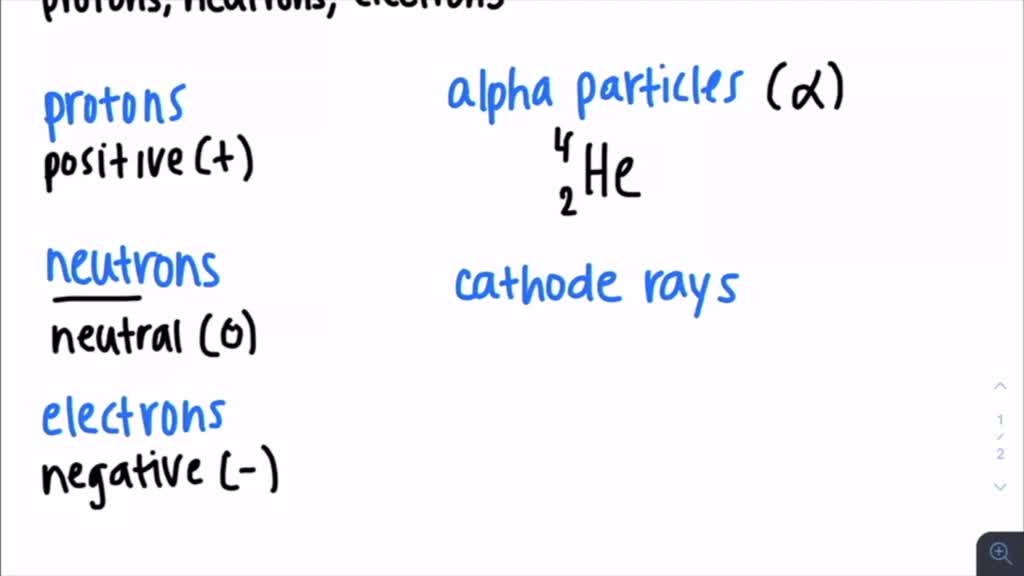 protons, neutrons, electrons
protons
positive (+)
neutrons
neutral (0)
electrons
negative (-)
alpha particles (α)
4
2 He
cathode rays
1
/
2